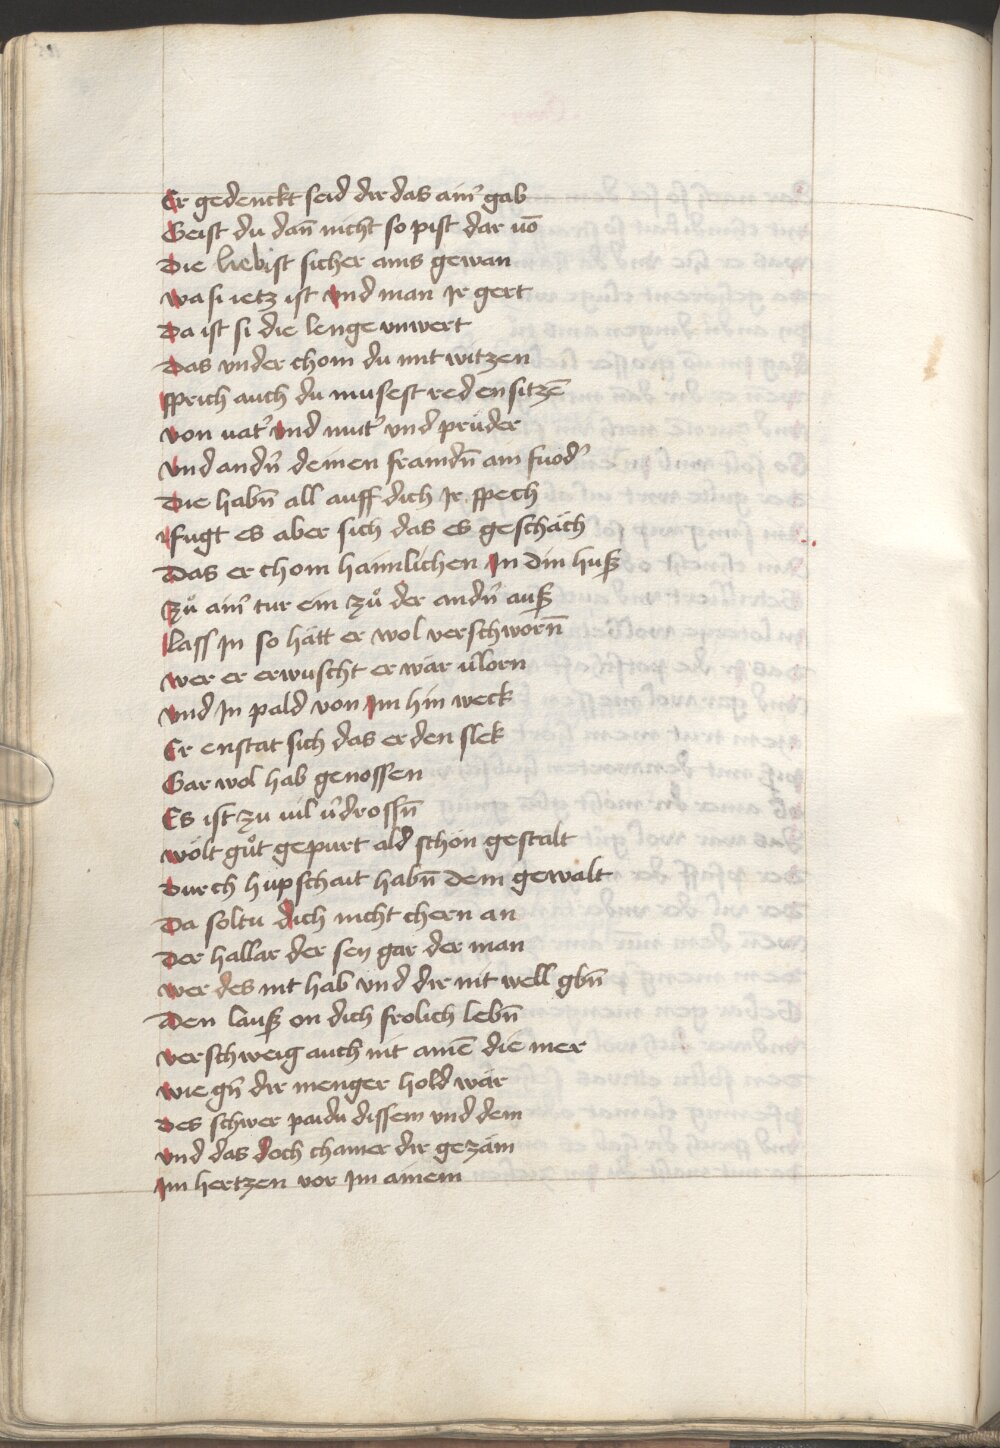 Er gedenckt seid dir das ainˀ gab
Geist du dañ nicht so pist dar uō
Die lieb ist sicher ains gewan
wa si ietz ist vnd man Jr gert
Da ist si die lenge vnwert
Das vnder chom du mit witzen
sprich auch du musest reden sitzē
von uatˀ vnd mutˀ vnd prüder
vnd andn̄ deinen framdn̄ ain fuodˀ
Die habn̄ all auff dich Jr spech
fugt es aber sich das es geschäch
Das er chom haimlichen Jn din huß
Zů ainˀ tur ein zů der andn̄ auß
lass Jn so hätt er wol verschworn̄
wer er erwuscht er wär ūlorn
vnd Jn pald von Jm hin weck
Er enstat sich das er den slek
Gar wol hab genossen
Es ist zu uil ūdrossn̄
wölt gůt gepurt ald schön gestalt
Durch hüpschait habn̄ dein gewalt
Da soltu dich nicht chern an
Der hallar der sey gar der man
wer des nit hab vnd dir nit well gbn̄
Den lauß on dich frolich lebn̄
verschweig auch nit ainē die mer
wie gn̄ dir menger hold wär
Des schwer paidu dissem vnd dem
vnd das doch chainer dir gezäm
Jm hertzen vor Jm ainem